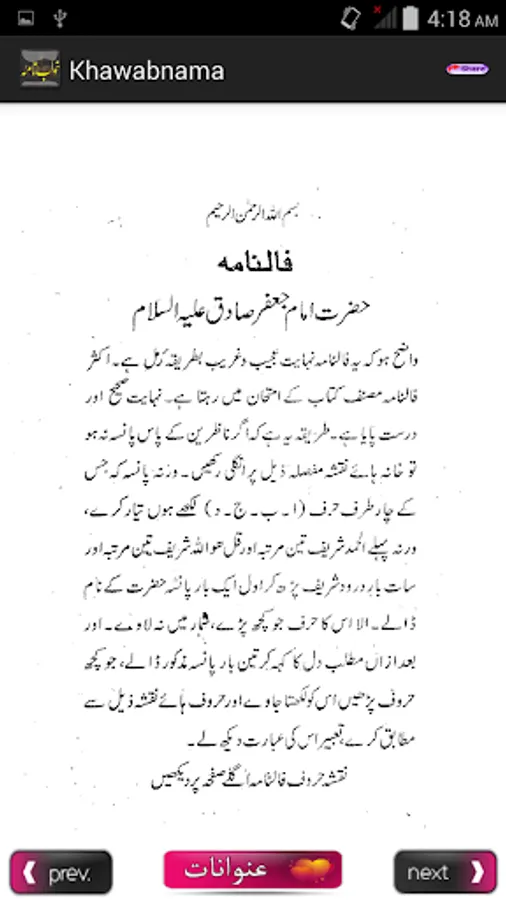 4:18 AM
Khawabnama
Share
بسم اللہ الرحمٰن الرحیم
فالنامہ
حضرت امام جعفر صادق علیہ السلام
واضح ہو کہ یہ فالنامہ نہایت عجیب و غریب بطریقہ رمل ہے۔ اکثر
فالنامہ مصنف کتاب کے امتحان میں رہتا ہے۔ نہایت صحیح اور
درست پایا ہے۔ طریقہ یہ ہے کہ اگر ناظرین کے پاس پانسہ نہ ہو
تو خانہ ہائے نقشہ مفصلہ ذیل پر انگلی رکھیں۔ ورنہ پانسہ کہ جس
کے چار طرف حرف (ا ۔ ب ۔ ج ۔ د) لکھے ہوں تیار کرے،
ورنہ پہلے الحمد شریف تین مرتبہ اور قل ھو اللہ شریف تین مرتبہ اور
سات بار درود شریف پڑھ کر اول ایک بار پانسہ حضرت کے نام
ڈالے۔ الا اس کا حرف جو کچھ پڑے، شمار میں نہ لاوے۔ اور
بعد ازاں مطلب دل کا کہہ کر تین بار پانسہ مذکور ڈالے، جو کچھ
حروف پڑھیں اس کو لکھتا جاوے اور حروف ہائے نقشہ ذیل سے
مطابق کرے، تعبیر اس کی عبارت دیکھ لے۔
نقشہ حروف فالنامہ اگلے صفحہ پر دیکھیں
prev.
عنوانات
next